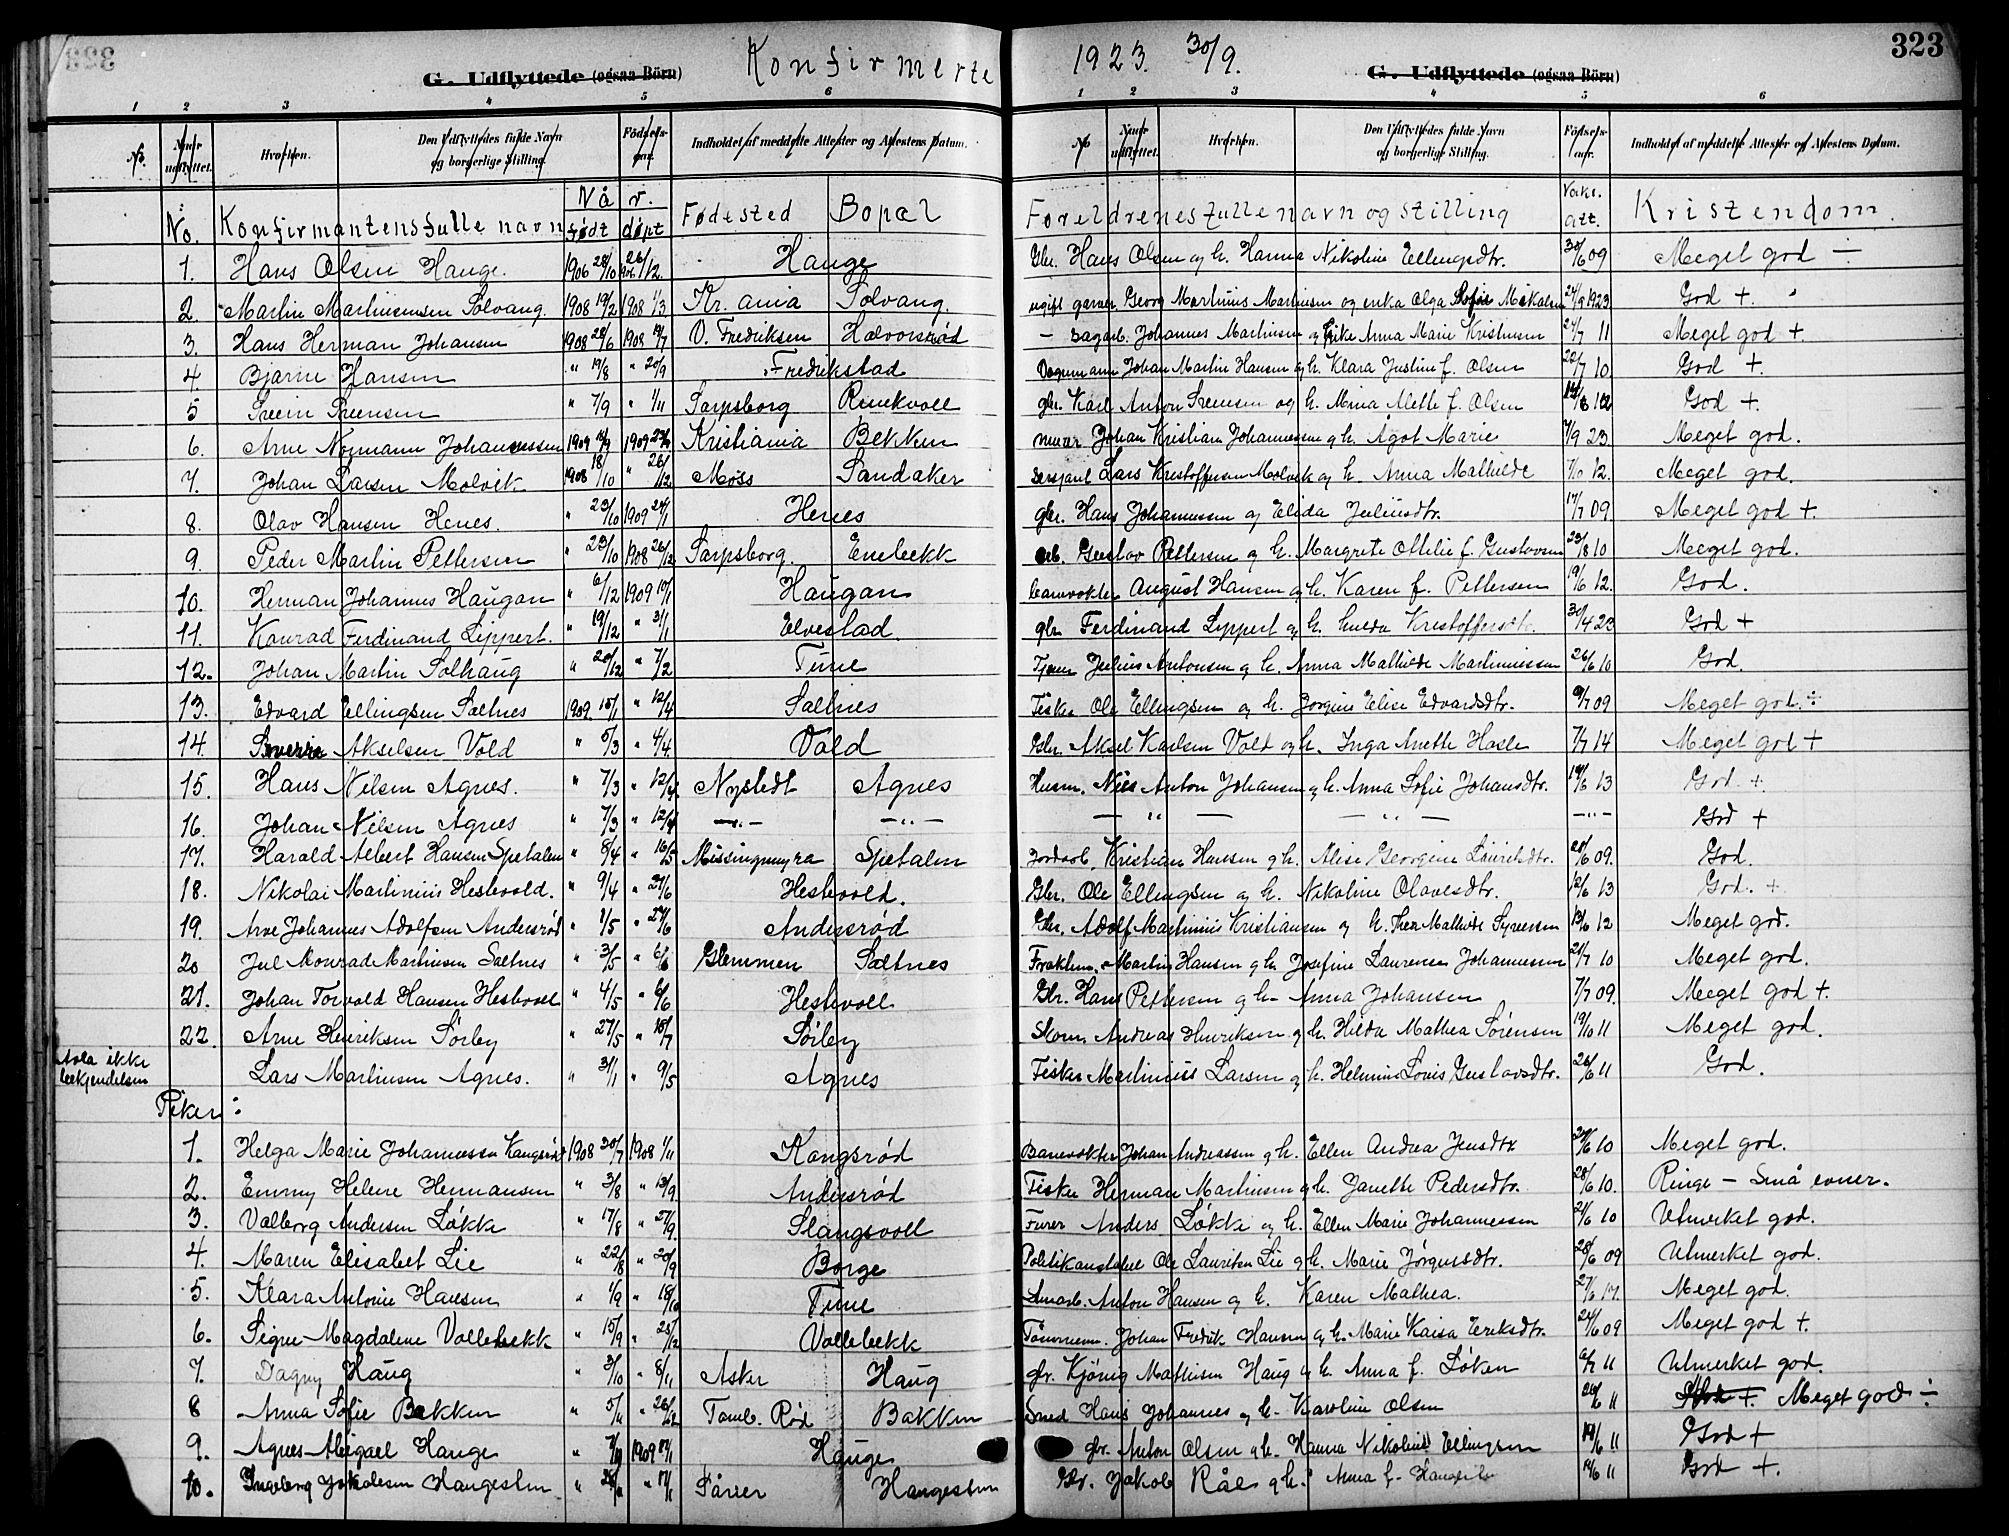 323
G. Udflyttede (ogsaa Börn) Konfirmerte 1923. 30/9. G. Udflyttede (ogsaa Börn) 323
1 2 3 4 5 6 1 2 3 4 5 6
No. Naar udflyttet. Hvorhen. Den Udflyttedes fulde Navn og borgerlige Stilling. Fødselsaar. Indholdet af meddelte Attester og Attestens Datum. No Naar udflyttet. Hvorhen. Den Udflyttedes fulde Navn og borgerlige Stilling. Fødselsaar. Indholdet af meddelte Attester og Attestens Datum.
No. Konfirmantens fulle navn Når født døpt Fødested Bopæl Foreldrenes fulle navn og stilling Vaks. att. Kristendom.
1. Hans Olsen Hauge. 1906 28/10 26/12 Hauge Gbr. Hans Olsen og h. Hanna Nikoline Ellingsdtr. 30/6 09 Meget god ÷
2. Martin Martinsen Solvang. 1908 19/2 1908 1/3 Kr.ania Solvang. ugift garver Georg Martinius Martinsen og enke Olga Sofie Mikalsen 24/9 1923 God +
3. Hans Herman Johansen 1908 28/6 1908 19/7 O. Fredriksen Halvorsrød — sagarb. Johannes Martinsen og Anna Marie Kristensen 24/7 11 Meget god +
4. Bjarne Hansen " 19/8 " 20/9 Fredrikstad Vognmann Johan Martin Hansen og h. Klara Justine f. Olsen 22/7 10 God +.
5 Svein Svensen " 7/9 " 1/11 Sarpsborg Renekvoll gbr. Karl Anton Svensen og h. Mina Alette f. Olsen God +.
6. Arne Normann Johannessen 1909 1909 Kristiania Bekken murer Johan Kristian Johannessen og h. Ågot Marie 7/9 23 Meget god.
7. Johan Larsen Molvik 1908 18/10 " 26/12 Moss Sandaker sersjant Lars Kristoffersen Molvik og h. Anna Mathilde 7/10 12. Meget god.
8. Olav Hansen Henes. " 23/10 1909 24/1 Henes gbr. Hans Johannessen og Elida Juliusdtr. 17/7 09. Meget god +.
9. Peder Martin Pettersen " 23/10 1908 26/12 Sarpsborg. Enebekk arb. Gustav Pettersen og h. Margrete Ottilie f. Gustavsen 23/8 10 Meget god.
10. Herman Johannes Haugan " 6/12 1909 10/1 Haugan banevokter August Hansen og h. Karen f. Pettersen 19/6 12. God.
11. Konrad Ferdinand Lippert. " 19/12 " 31/1 Elvestad. gbr Ferdinand Lippert og h. Hulda Kristoffersdtr. 30/4 23 God +
12. Johan Martin Solhaug " 20/12 " 7/2 Tune Tjener Julius Antonsen og h. Anna Mathilde Martinussen 26/6 10 God.
13. Edvard Ellingsen Saltnes 1909. 15/1 " 12/4 Saltnes Fisker Ole Ellingsen og h. Jorgine Elise Edvardsdtr. 9/7 09 Meget god. ÷
14. Sverre Akselsen Vold " 5/3 " 4/4 Vold Gbr. Aksel Karlsen Vold og h. Inga Anette Hasle 7/7 14 Meget god +
15. Hans Nilsen Agnes. " 7/3 " 12/4 Nystedt Agnes Husm. Nils Anton Johansen og h. Anna Sofie Johansdtr. 19/6 13 God +
16. Johan Nilsen Agnes " 7/3 " 12/4 — " — — " — — " — — " — — " — God +
17. Harald Albert Hansen Spetalen " 8/4 " 16/5 Missingmyra Spetalen Jordarb. Kristian Hansen og h. Alise Georgine Lauritsdtr. 28/6 09. God.
18. Nikolai Martinius Hestvold. " 9/4 " 27/6 Hestvold. Gbr. Ole Ellingsen og h. Nikoline Olavesdtr. 12/6 13 God. +
19. Arve Johannes Adolfsen Andersrød " 1/5 " 27/6 Andersrød Gbr. Adolf Martinius Kristiansen og h. Thea Mathilde Syversen 13/6 12 Meget god.
20 Jul Konrad Martinsen Saltnes " 3/5 " 6/6 Glemmen Saltnes Martin Hansen og h. Josefine Laurense Johannessen 21/7 10 Meget god.
21. Johan Torvald Hansen Hestvoll " 4/5 " 6/6 Hestvoll Gbr. Hans Pettersen og h. Anna Johansen 7/7 09. Meget god +.
22. Arne Henriksen Sørby " 27/5 " 18/7 Sørby Skom. Andreas Henriksen og h. Hilda Mathea Sørensen 19/10 11 Meget god.
Avla ikke bekjendelsen Lars Martinsen Agnes. " 31/1 " 9/5 Agnes Fisker Martinius Larsen og h. Helmine Lovis Gustavsdtr. 26/6 11 God.
Piker:
1. Helga Marie Johannessen Kangsrød 1908 20/7 1908 1/11 Kangsrød Banevokter Johan Andreassen og h. Ellen Andrea Jensdtr 24/6 10 Meget god.
2. Emmy Helene Hermansen " 3/8 " 13/9 Andersrød Fisker Herman Martinsen og h. Janette Pedersdtr. 28/6 10. Ringe — Små evner.
3. Valborg Andersen Løkke " 17/8 " 27/9. Slangsvoll Furer Anders Løkke og h. Ellen Marie Johannessen 21/6 10 Utmerket god.
4. Maren Elisabet Lie " 22/8 " 20/9 Borge Politikonstabel Ole Lauritsen Lie og h. Marie Jørgensdtr. 28/6 09 Utmerket god.
5. Klara Antonie Hansen " 1/9 " 18/10 Tune Anton Hansen og h. Karen Mathea. 27/6 17. Meget god.
6. Signe Magdalene Vollebekk " 15/9 " 25/12 Vollebekk Tømmerm. Johan Fredrik Hansen og h. Marie Kaisa Eriksdtr. 24/6 09 Meget god +.
7. Dagny Haug " 3/10 " 8/11 Asker Haug gbr. Kjønig Mathisen Haug og h. Anna f. Løken 6/7 11 Utmerket god.
8 Anna Sofie Bakken " 5/11 " 26/12 Tomb. Rød Bakken Smed Hans Johannes og h. Karoline Olsen 26/6 11 God +. Meget god ÷
9. Agnes Abigael Hauge " 7/11 1909 17/1 Hauge gbr. Anton Olsen og h. Hanna Nikoline Ellingsen 19/6 11 God +
10. Ingeborg Jakobsen Haugesten " 28/11 " 17/1 Såner Haugesten Gbr. Jakob Råel og h. Anna f. 19/6 11 God +.